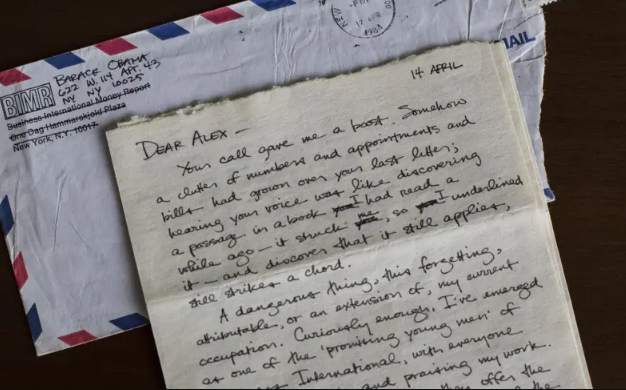 BARACK OBAMA
622 W. 114 APT. 43
NY NY 10025
BIMR
Business International Money Report
One Dag Hammarskjold Plaza
New York, N.Y. 10017
17 APR
1984
MAIL
14 APRIL
DEAR ALEX —
Your call gave me a boost. Somehow
a clutter of numbers and appointments and
bills had grown over your last letter;
hearing your voice was like discovering
a passage in a book I had read a
while ago — it struck me, so I underlined
it — and discover that it still applies,
still strikes a chord.
A dangerous thing, this forgetting,
attributable, or an extension of, my current
occupation. Curiously enough, I've emerged
as one of the "promising young men" of
International, with everyone
and praising my work.
offer the